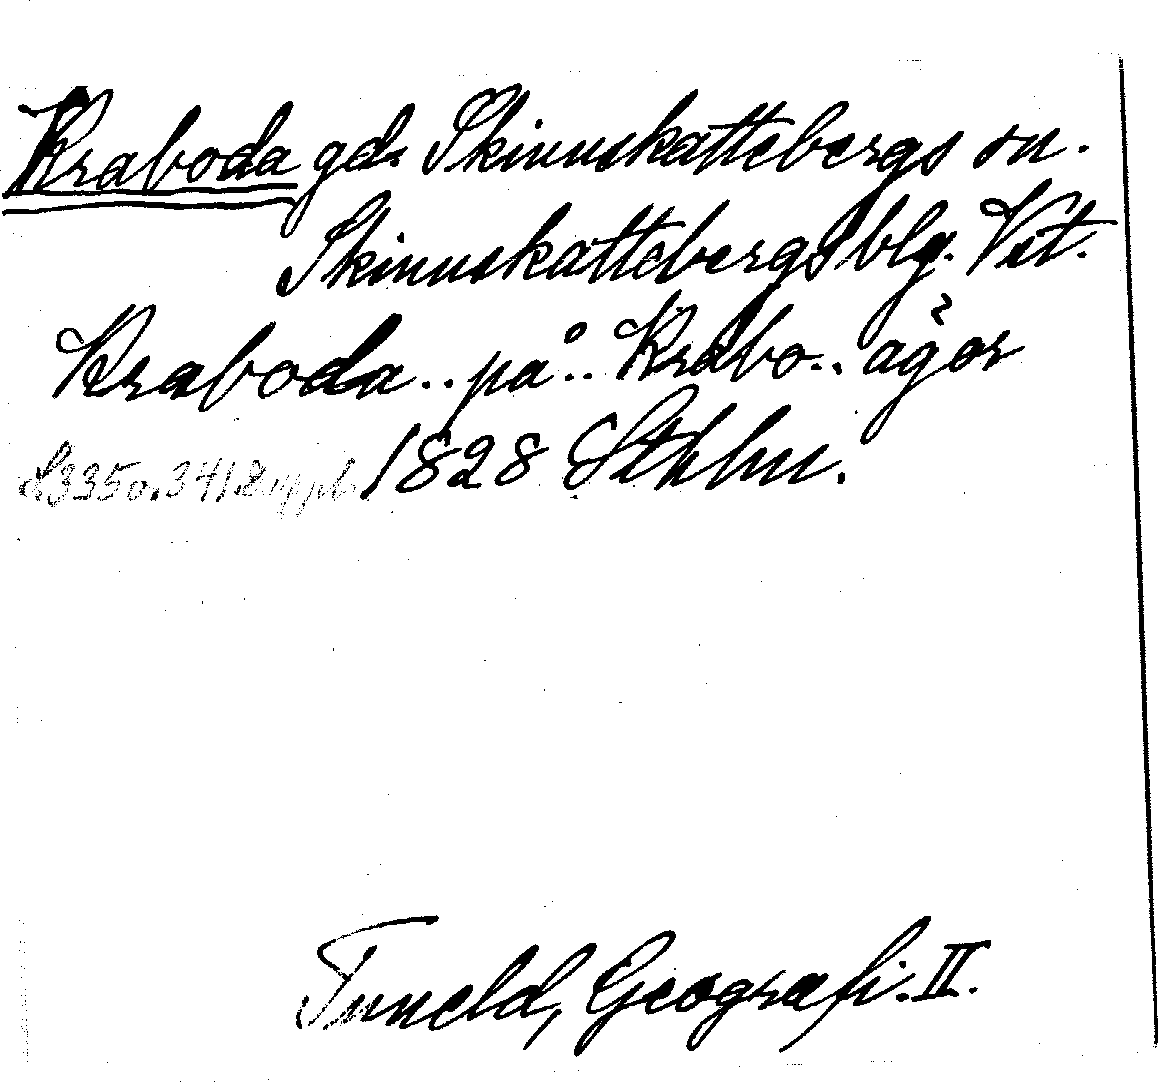 Kraboda gd. Skinnskattebergs sn.
Skinnskattebergs blg. Vst.
Kraboda .. på .. Krabo .. ägor
S 335 o. 341. Uppl. 1828 Sthlm.
Tuneld, Geografi. II.